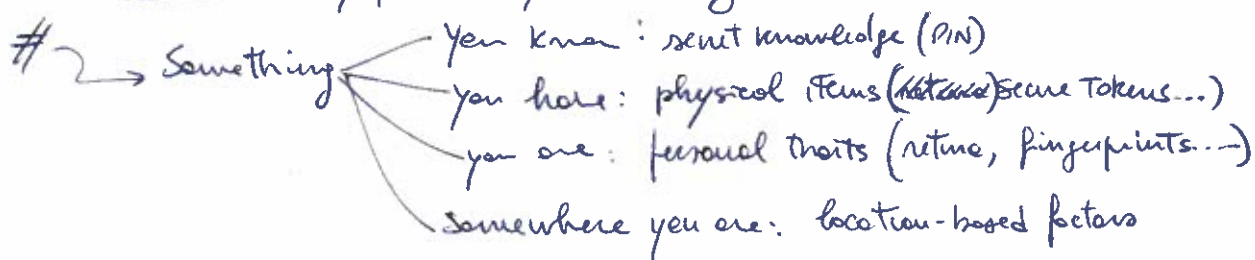 # → Something
you know : secret knowledge (PIN)
you have : physical items (secure Tokens...)
you are : personal traits (retina, fingerprints...)
somewhere you are : location-based factors